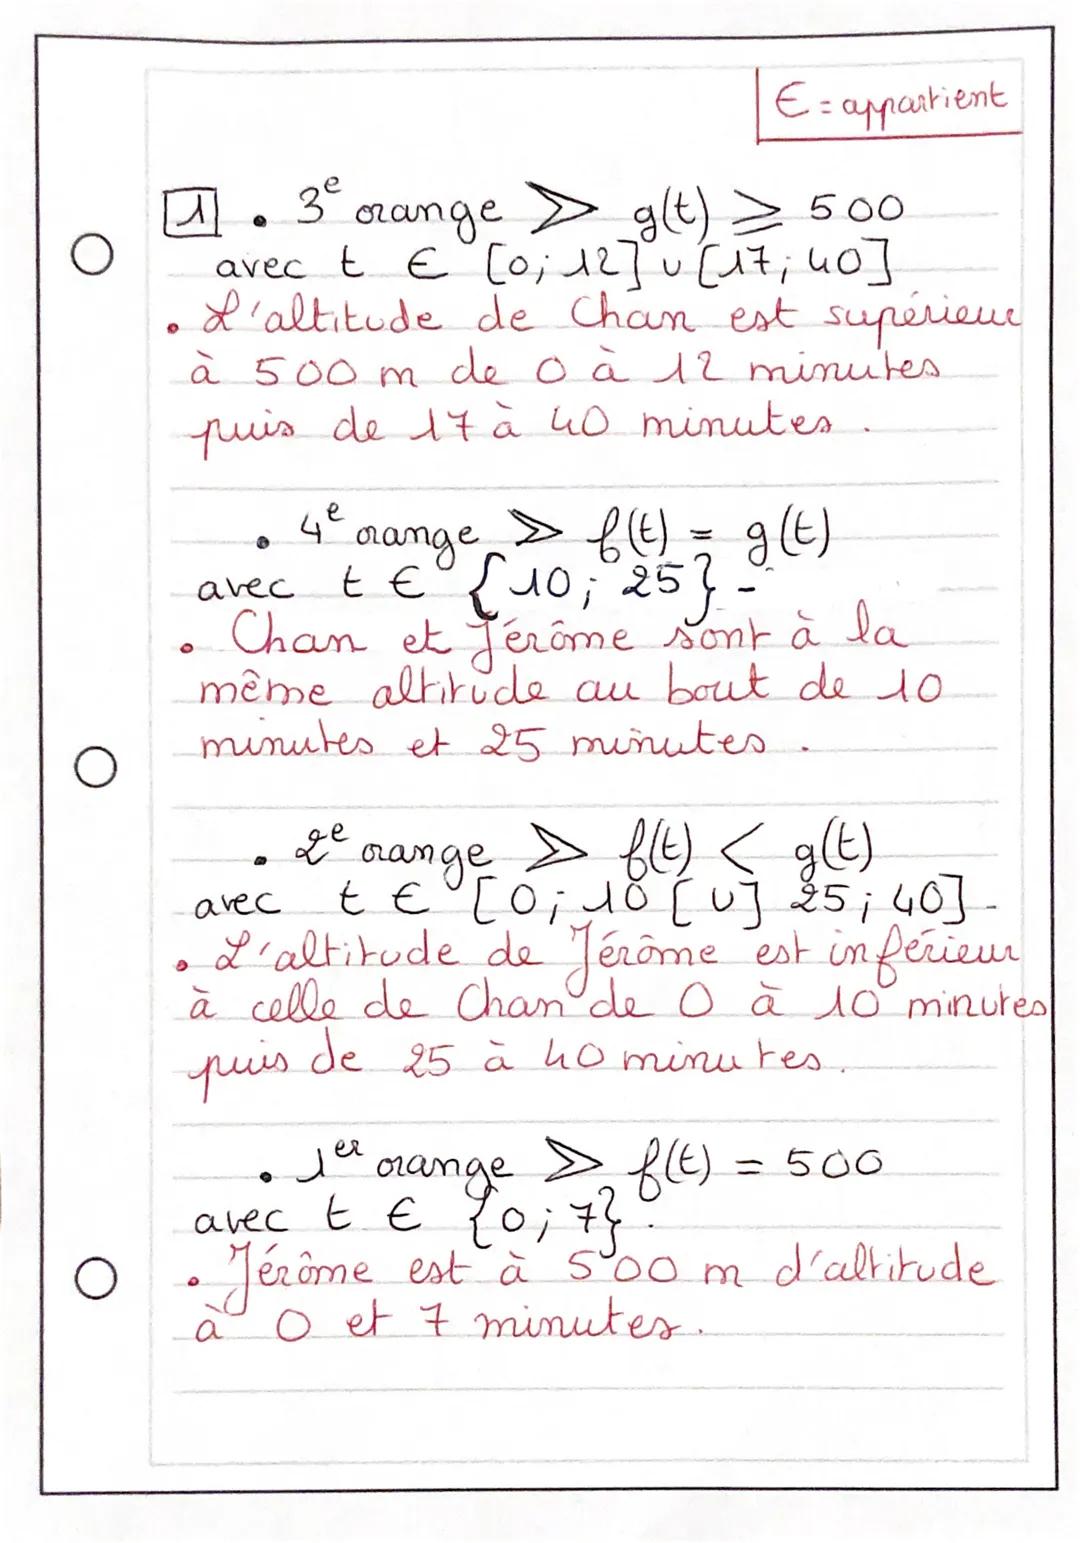 ∈ = appartient
1 • 3e orange > g(t) ≥ 500
avec t ∈ [0; 12] ∪ [17; 40]
• L'altitude de Chan est supérieur
à 500 m de 0 à 12 minutes
puis de 17 à 40 minutes.
• 4e orange > f(t) = g(t)
avec t ∈ {10; 25} -
• Chan et Jérôme sont à la
même altitude au bout de 10
minutes et 25 minutes.
• 2e orange > f(t) < g(t)
avec t ∈ [0; 10[ ∪ ]25; 40] -
• L'altitude de Jérôme est inférieur
à celle de Chan de 0 à 10 minutes
puis de 25 à 40 minutes.
• 1er orange > f(t) = 500
avec t ∈ {0; 7}.
• Jérôme est à 500 m d'altitude
à 0 et 7 minutes.